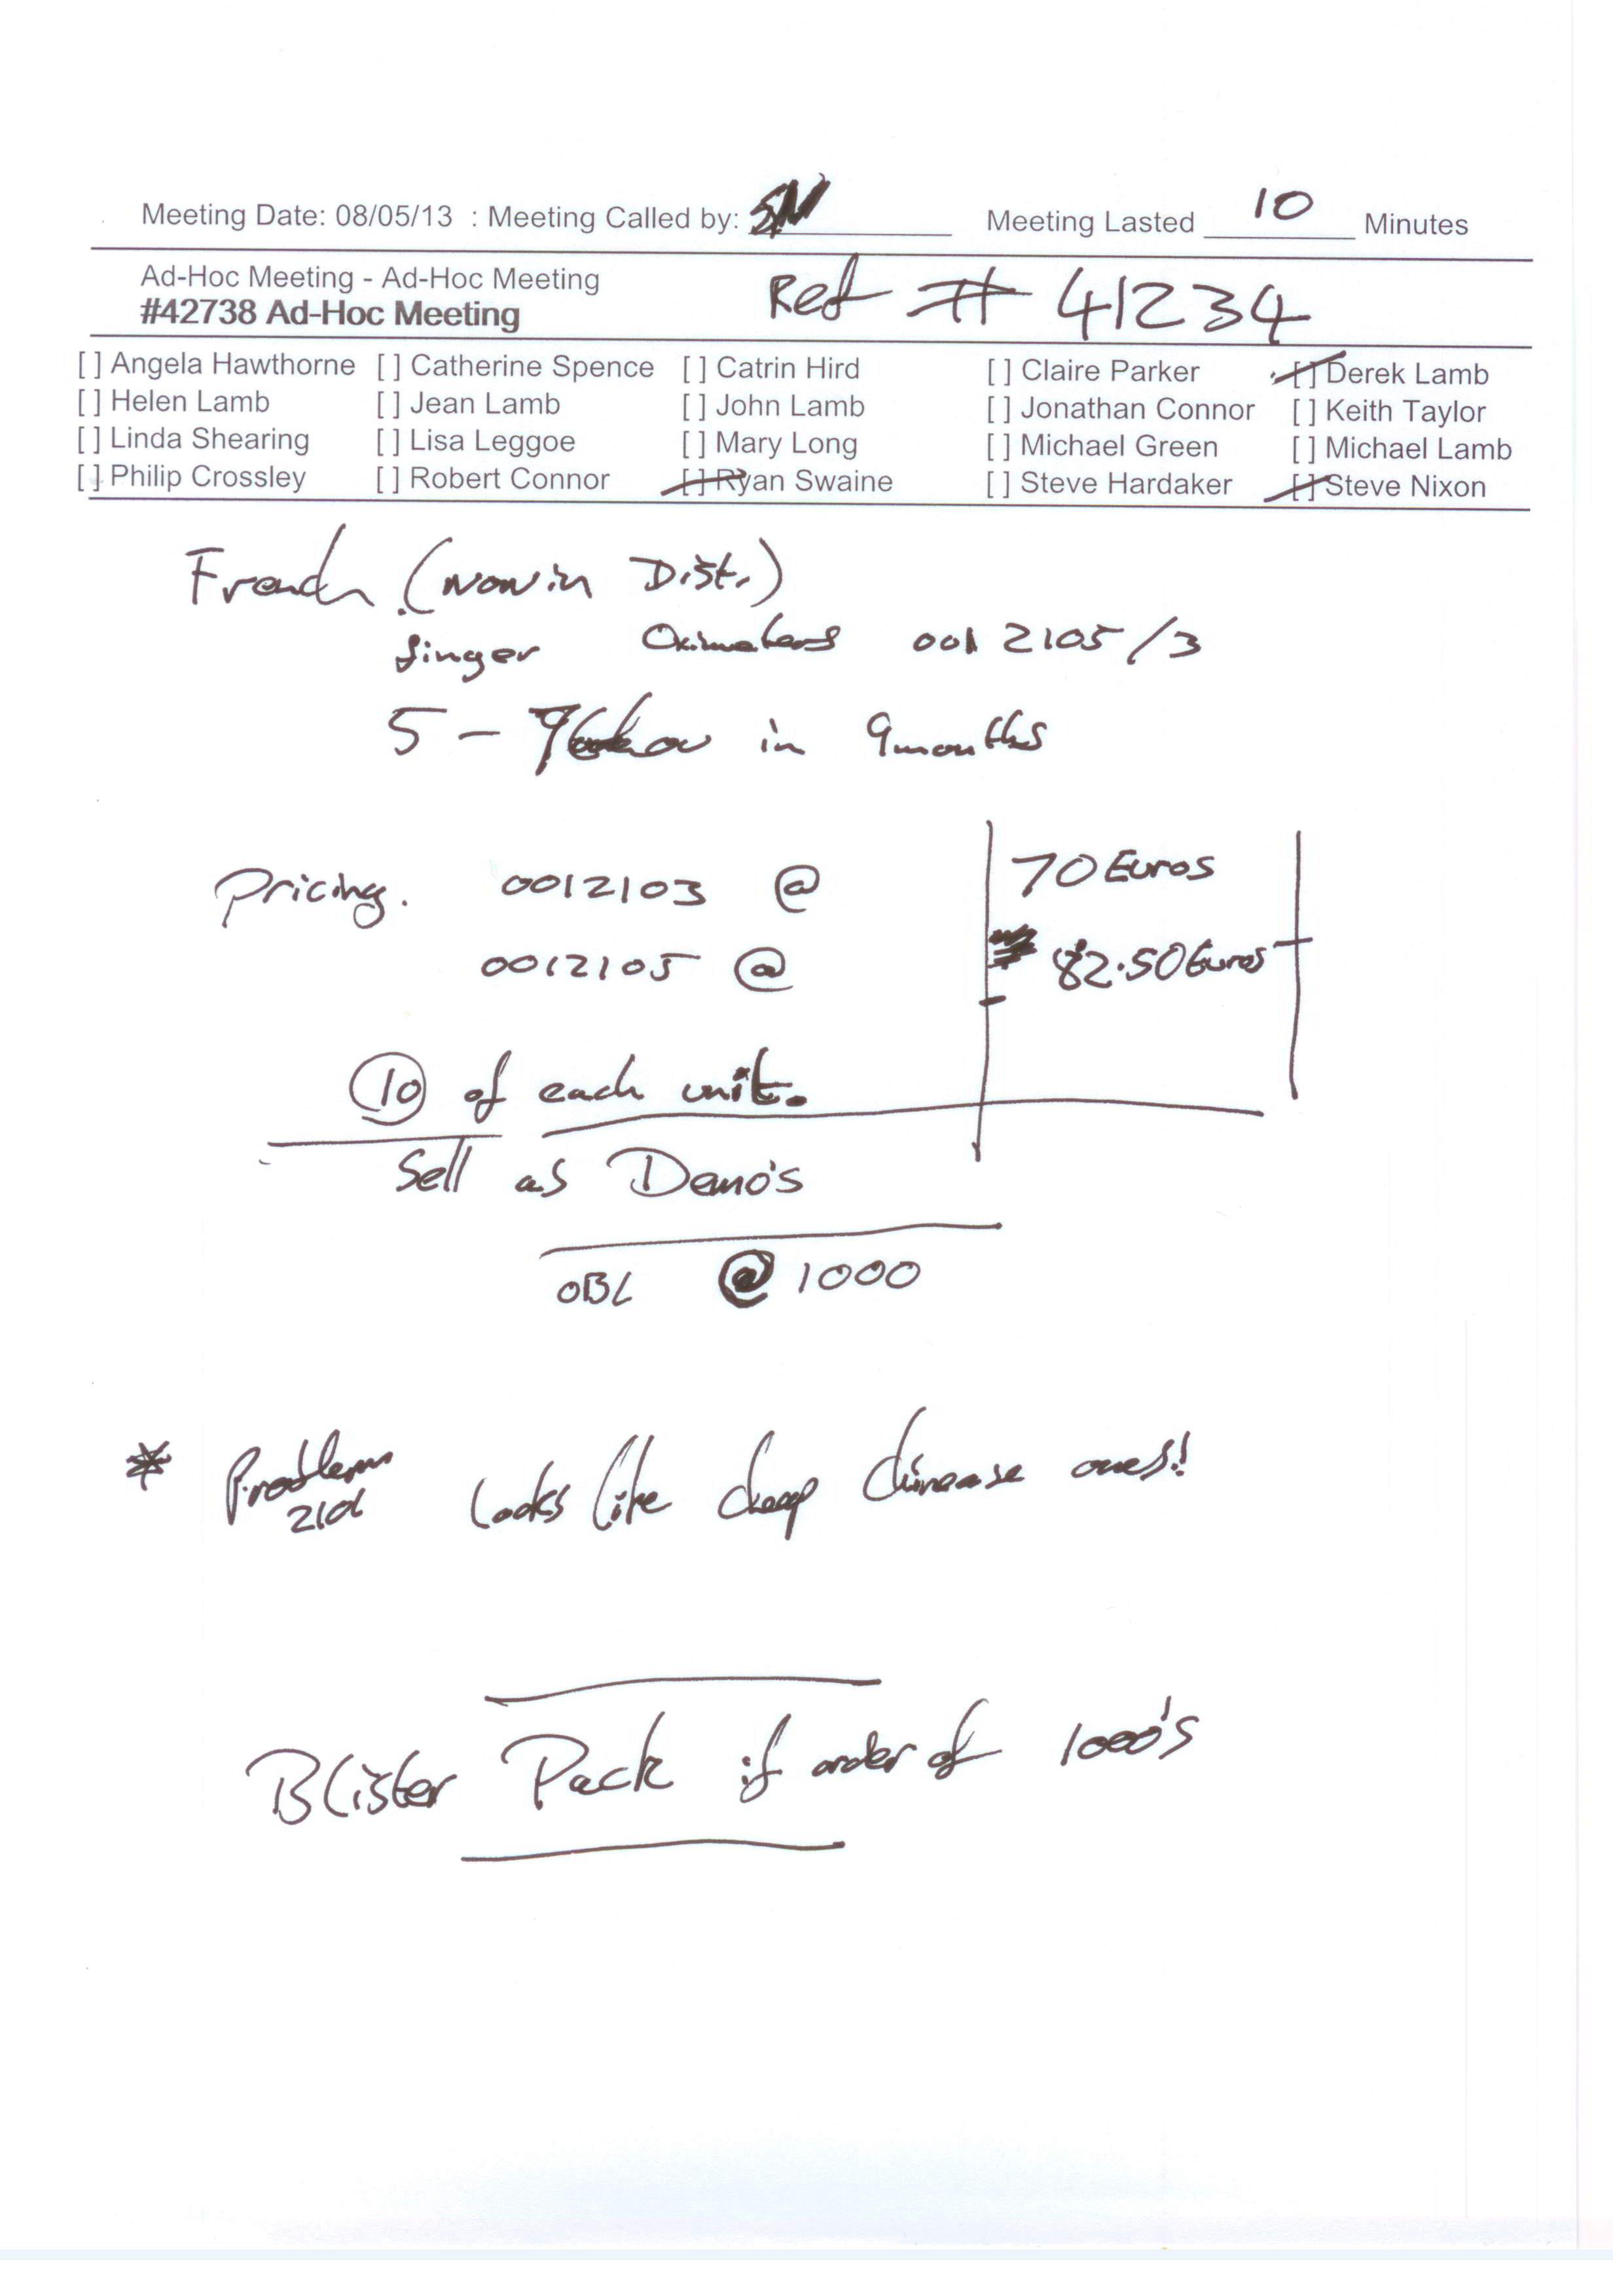 Meeting Date: 08/05/13 : Meeting Called by: SN Meeting Lasted 10 Minutes
Ad-Hoc Meeting - Ad-Hoc Meeting
#42738 Ad-Hoc Meeting Ref # 41234
[ ] Angela Hawthorne [ ] Catherine Spence [ ] Catrin Hird [ ] Claire Parker [ ] Derek Lamb
[ ] Helen Lamb [ ] Jean Lamb [ ] John Lamb [ ] Jonathan Connor [ ] Keith Taylor
[ ] Linda Shearing [ ] Lisa Leggoe [ ] Mary Long [ ] Michael Green [ ] Michael Lamb
[ ] Philip Crossley [ ] Robert Connor [ ] Ryan Swaine [ ] Steve Hardaker [ ] Steve Nixon
French (now in Dist.)
finger Oximeters 0012105/3
5 - in 9months
Pricing. 0012103 @ 70 Euros
0012105 @ 82.50 Euros
10 of each unit.
Sell as Demo's
OBL @ 1000
* Problem Looks like cheap chinease ones!!
Blister Pack if order of 1000's